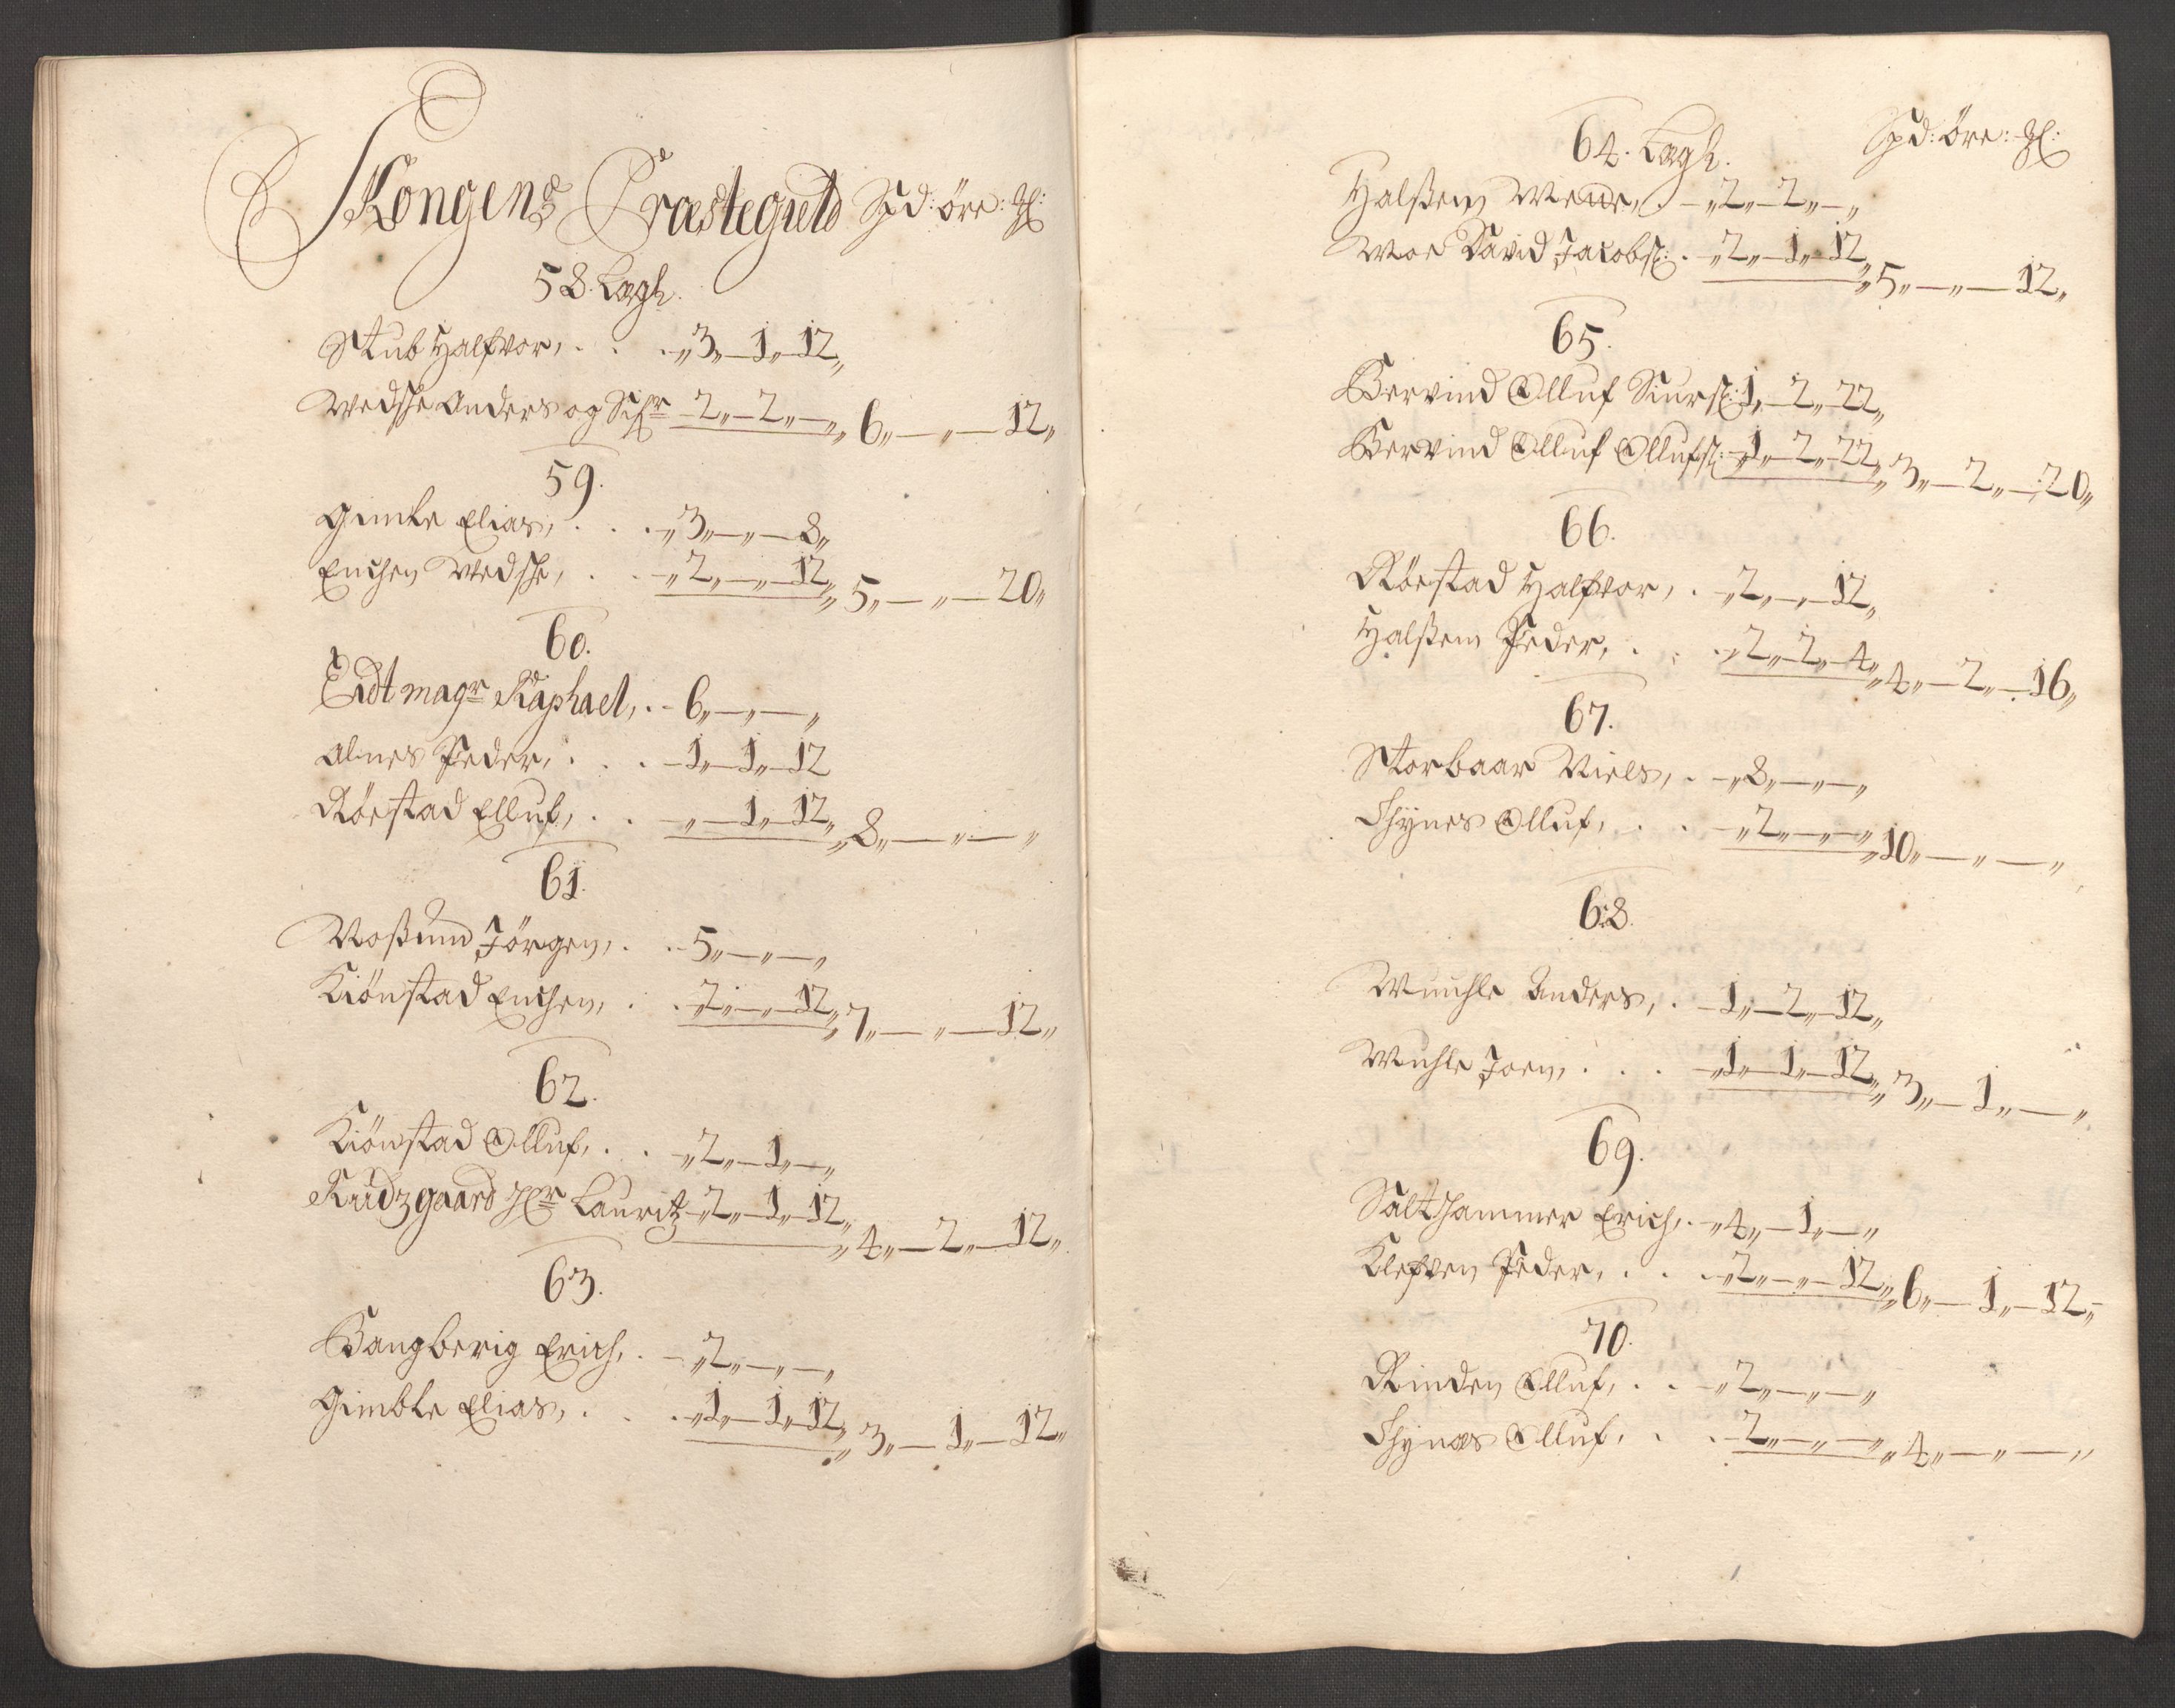 Skongens Præstegield Spd: öre: gl:
58. Lægh.
Stub Halfvor, . . . „3„—1„—12„
Wedshe Anders og Sifr 2„—2„—„ 6„—„—12„
59.
Gimle Elias, . . . „3„—„—8„
Enchen Wedshe, . . „2„—„—12„ 5„—„—20„
60.
Eidt magr Raphael, . . 6„—„—„
Alnes Peder, . . . 1„—1„—12
Röestad Elluf, . . „—1„—12„ 8„—„—„
61.
Voßum Jörgen, . . 5„—„—„
Kiönstad Enchen, . . 2„—„—12„ 7„—„—12„
62.
Kiönstad Olluf, . . „2„—1„—„
Rudzgaard Hr Lauritz 2„—1„—12„ 4„—2„—12„
63.
Bangberig Erich, . „2„—„—„
Gimble Elias, . . . „1„—1„—12„ 3„—1„—12„
64. Lægh. Spd: Öre: gl:
Halßem Wedr, . „2„—2„—„
Moe David Jacobs: . „2„—1„—12„ 5„—„—12„
65.
Bervind Olluf Siurs: 1„—2„—22„
Bervind Olluf Ollufs: „1„—2„—22„ 3„—2„—20„
66.
Röestad Halfvor, . „2„—„—12„
Halßem Peder, . . „2„—2„—4„ 4„—2„—16„
67.
Storbaar Niels, . „8„—„—„
Thynes Olluf, . . „2„—„—„ 10„—„—„
68.
Wuchle Anders, . 1„—2„—12„
Wuhle Joen, . . . „1„—1„—12„ 3„—1„—„
69.
Salthammer Erich, . „4„—1„—„
Klefven Peder, . . „2„—„—12„ 6„—1„—12„
70.
Rinden Olluf, . . „2„—„—„
Thynæs Olluf, . . 2„—„—„ 4„—„—„